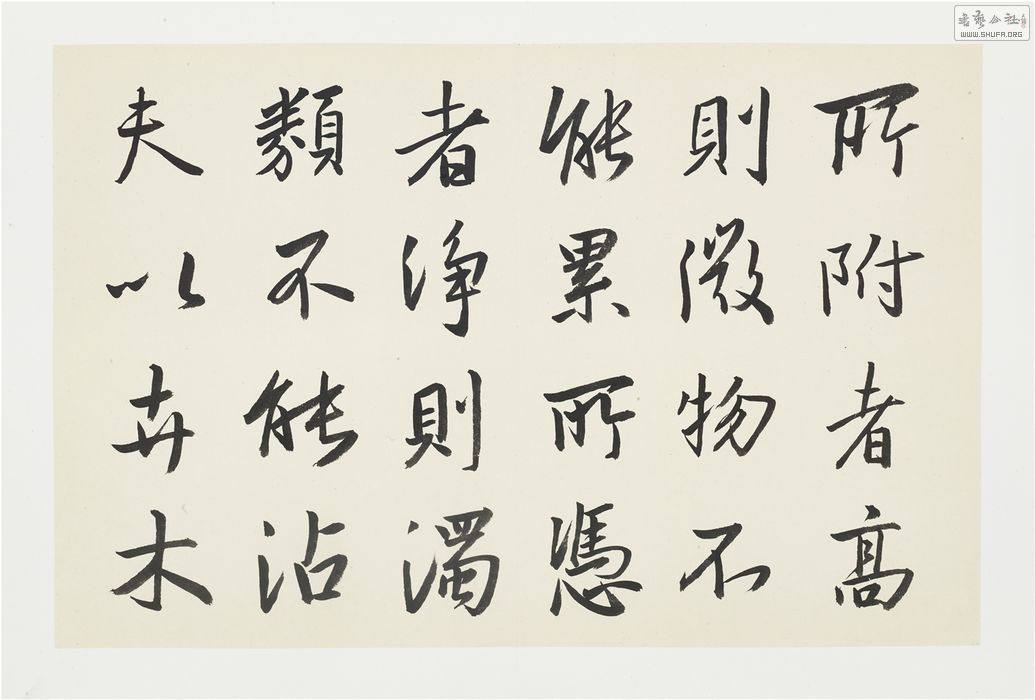 所附者高
則微物不
能累所憑
者淨則濁
類不能沾
夫以卉木
書藝公社
WWW.SHUFA.ORG